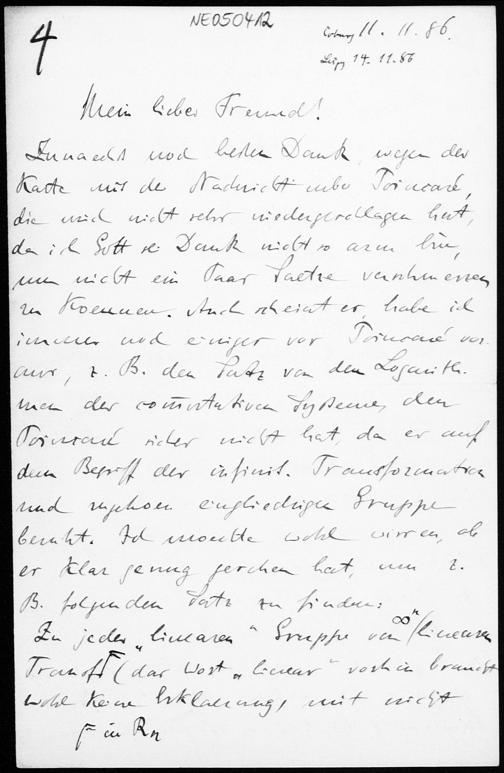 4
NE050412
Coburg 11. 11. 86.
Leipz 14. 11. 86
Mein lieber Freund!
Zunaechst noch besten Dank, wegen der
Karte mit der Nachricht ueber Poincaré,
die mich nicht sehr niedergeschlagen hat,
da ich Gott sei Dank nicht so arm bin,
um nicht ein Paar Saetze verschmerzen
zu Koennen. Auch scheint es, habe ich
immer noch einiges vor Poincaré vor-
aus, z. B. den Satz von den Logarith-
men der commutativen Systeme, den
Poincaré sicher nicht hat, da er auf
dem Begriff der infinit. Transformation
und zugehoer eingliedrigen Gruppe
beruht. Ich moechte wohl wissen, ob
er Klar genug gesehen hat, um z.
B. folgenden Satz zu finden:
Zu jeder „linearen" Gruppe von ∞ linearen
Transf (das Wort „linear" vorhin braucht
wohl Keine Erklaerung, mit nicht
in Rn